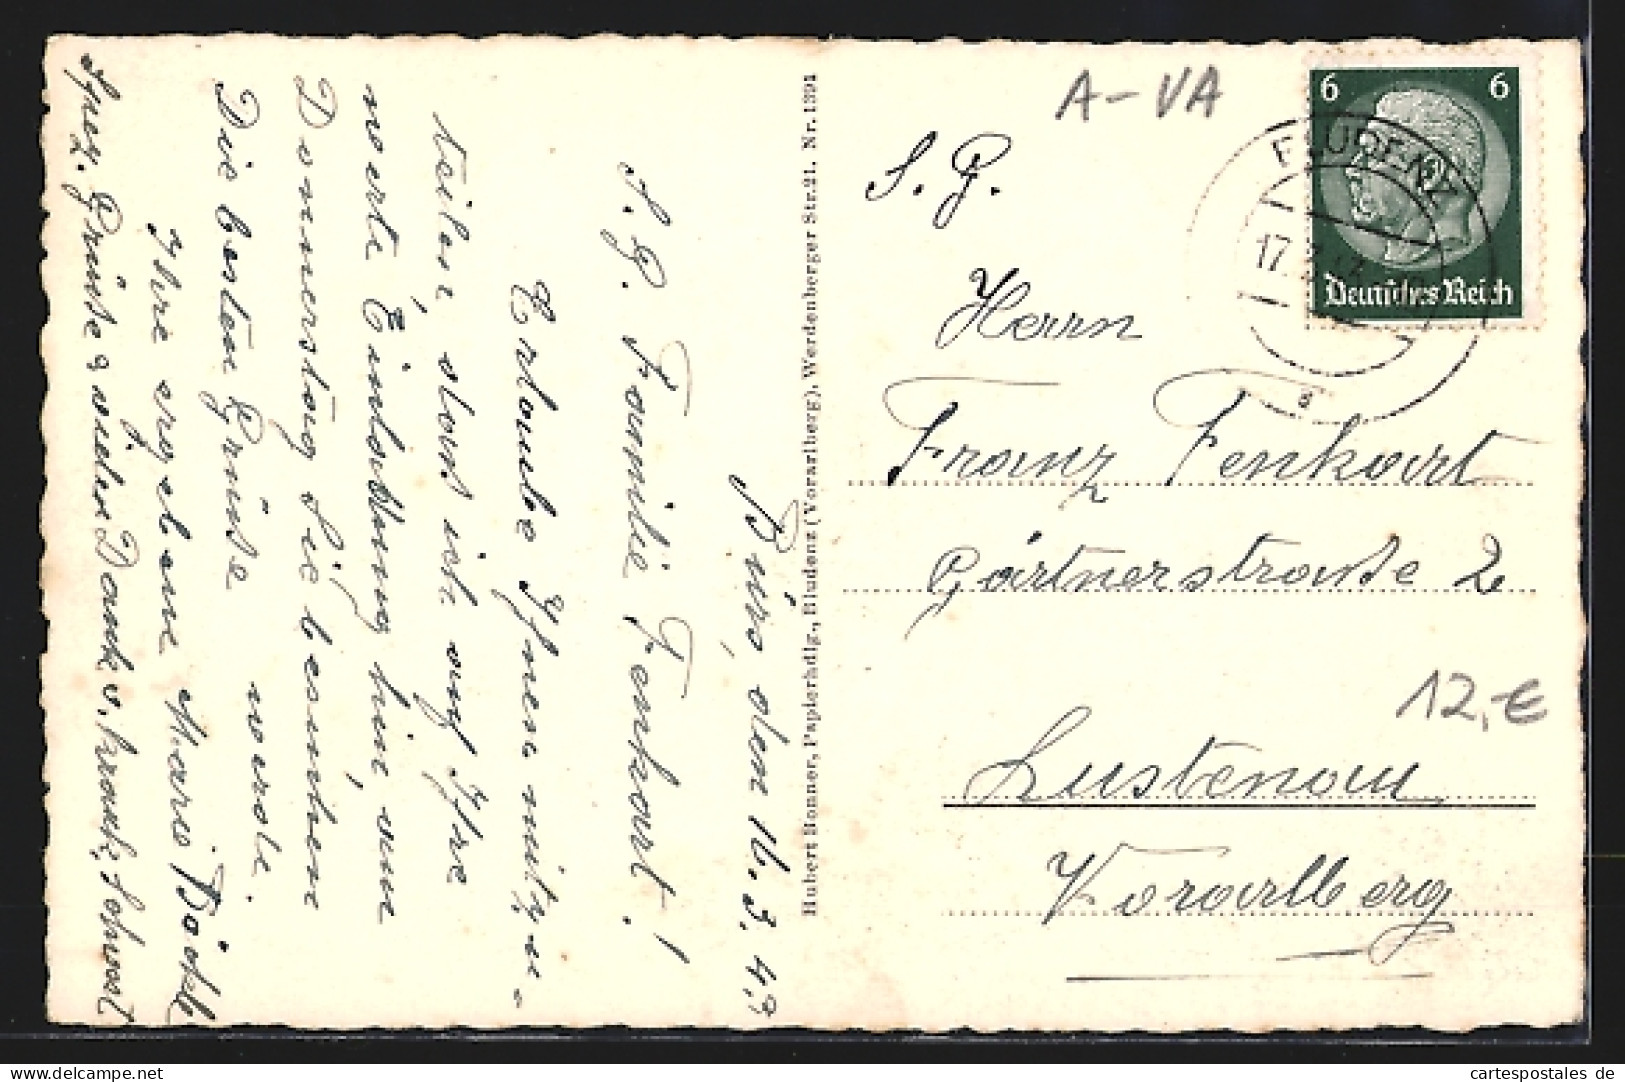 A-VA
6 6
Deutsches Reich
BLUDENZ
17.
S. G.
Herrn
Franz Fenkart
Gärtnerstraße 2
Lustenau
Vorarlberg
12,-€
Hubert Bonner, Papierhdlg., Bludenz (Vorarlberg), Werdenberger Str. 21. Nr. 1391
Bürs, den 16. 3. 42
S. G. Familie Fenkart!
Erlaube Ihnen mitzu-
teilen, dass ich auf Ihre
werte Einladung hin, am
Donnerstag Sie besuchen
werde.
Die besten Grüße
Ihre ergebene Maria
Spez. Grüße & vielen Dank v.
www.cartespostales.eu
cartespostales de